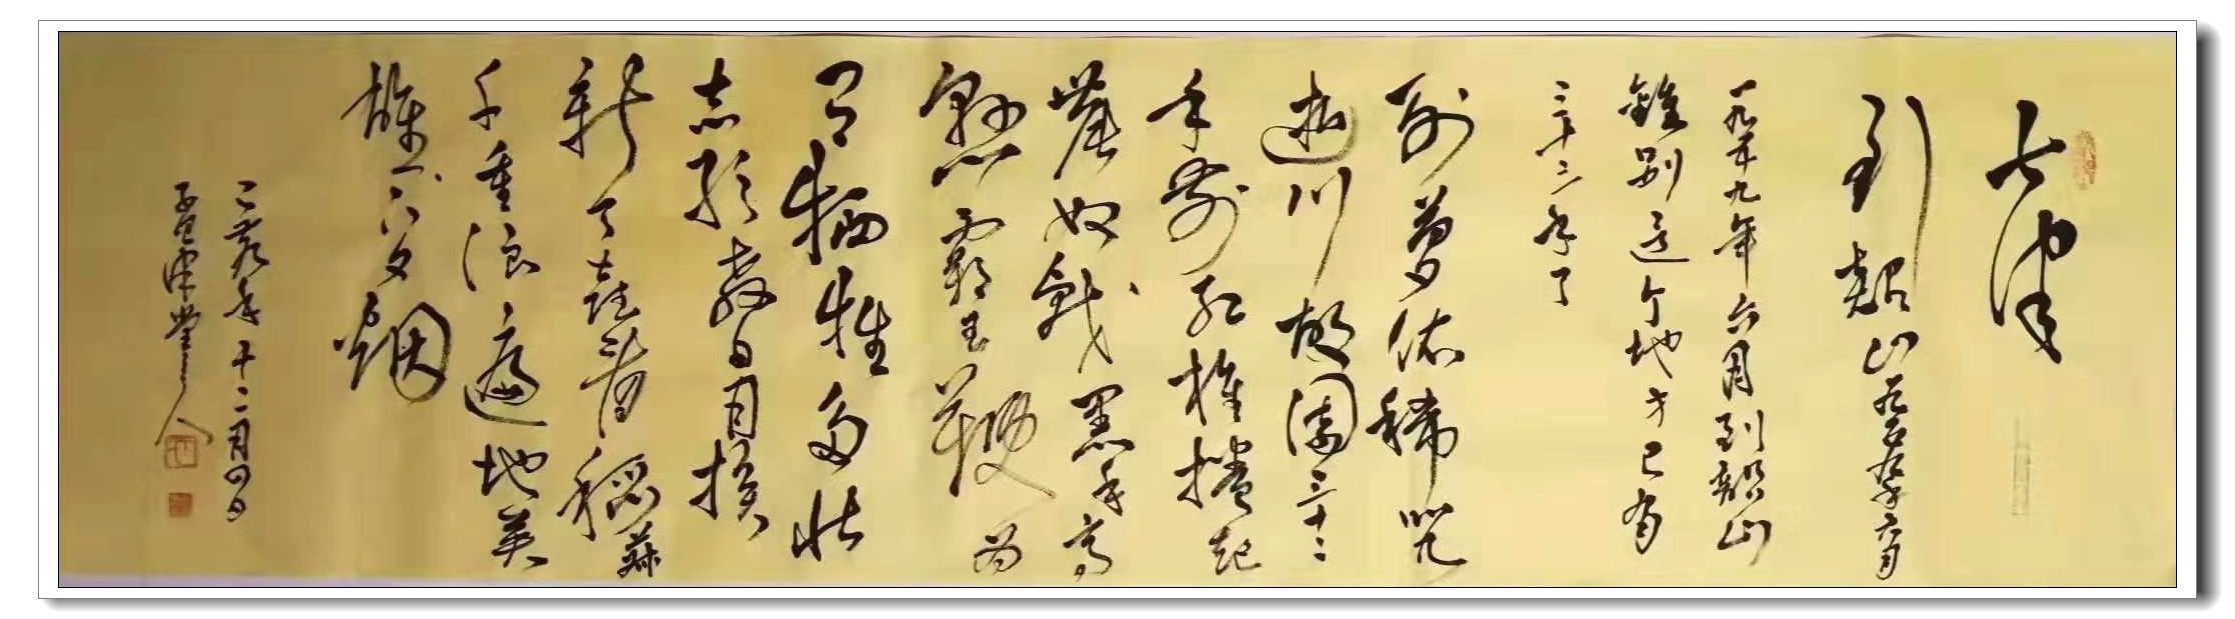 七律
到韶山 一九五九年六月
一九五九年六月到韶山
離别這个地方已有
三十二年了
别夢依稀咒
逝川故園三十二
年前红旗捲起
農奴戟黑手高
懸霸主鞭为
有牺牲多壯
志敢教日月换
新天喜看稻菽
千重浪遍地英
雄下夕烟
年十二月四日